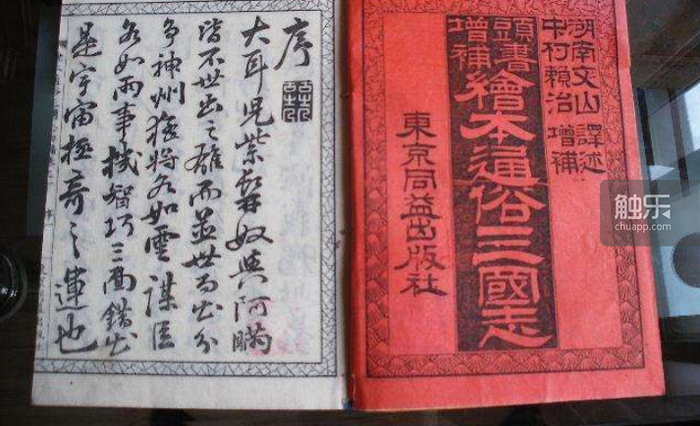 湖南文山 譯述
中村賴治 增補
頭書
增補
繪本通俗三國志
東京同益出版社
序
大耳兒紫髯奴與阿瞞
皆不世出之雄而並世而出分
爭神州猛將多如雲謀臣
多如雨事機智巧三面錯出
是宇宙極奇之運也
触乐
chuapp.com